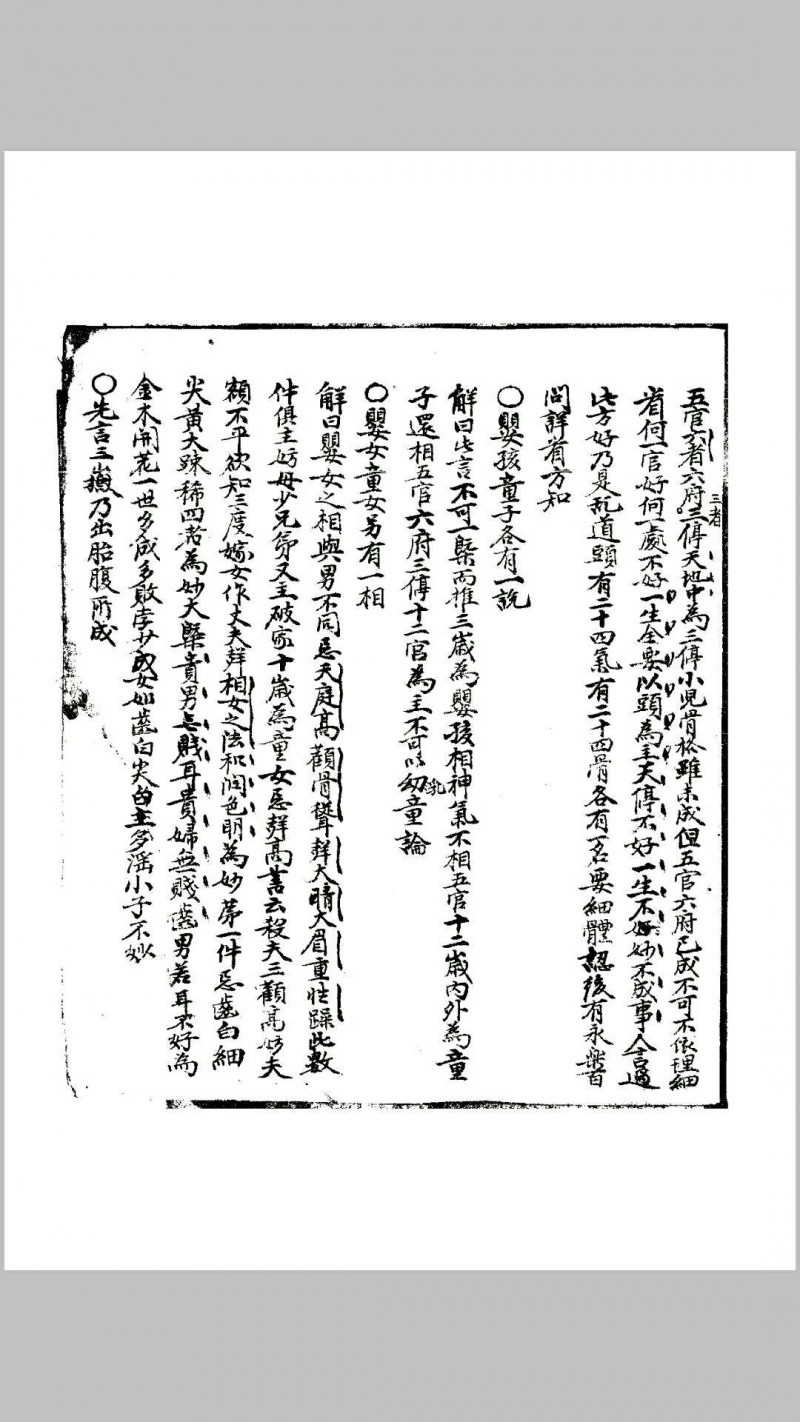 五官六者六府三停天地中為三停小児骨格雖未成但五官六府已成不可不依理細
三者
省何一官好何一處不好一生全要以頭為主天停不好一生不好妙不成事人言過
此方好乃是乱道頭有二十四氣有二十四骨各有一名要細體認後有永樂百
问詳首方知
〇嬰孩童子各有一說
解曰此言不可一槩而推三歲為嬰孩相神氣不相五官十二歲内外為童
子還相五官六府三停十二官為主不可以幼童論
乳
〇嬰女童女另有一相
解曰嬰女之相與男不同忌天庭髙顴骨聳鼻大睛大眉重性躁此數
件俱主妨母少兄弟又主破家十歲為童女忌鼻髙書云殺夫三顴髙妨夫
額不平欲知三度嫁女作丈夫聲相女之法和润色明為妙苐一件忌齒白細
尖黃大踈稀四者為妙大槩貴男無賤耳貴婦無賤齒男若耳不好為
金木開花一世多成多敗孛少成女如齒白尖白主多滛小子不妙
〇先言三歲乃出胎腹所成